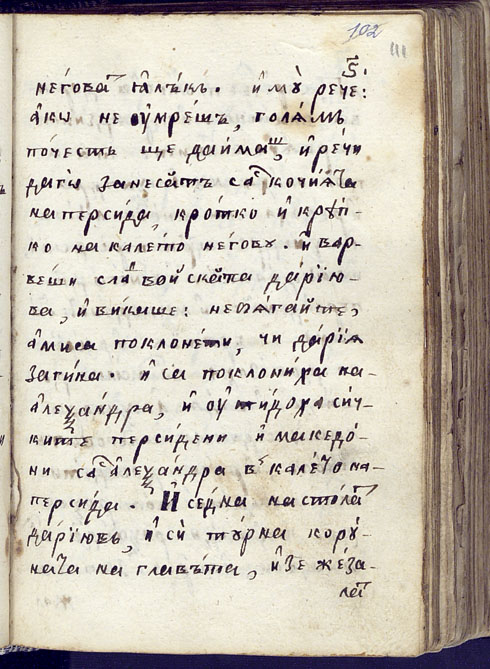 102
111
негова ꙗлъкъ. и му рече:
ако не оумрешъ, голямъ
почесть ще да имашъ, и речи
даго занесатъ сас кочията
на персида, кротко и круп-
ко на калето негову. и вар-
веши след войската дарїю-
ва, и викаше:
амиса поклонети, чи дарїя
загина. и са поклониха на-
алеѯандра, и отидоха сич-
ките персидени и македо-
ни сас алеѯандра в калето на-
персида. И седна на стола
дарїювъ, и си турна кору-
ната на главъта, и зе жеза-
лат